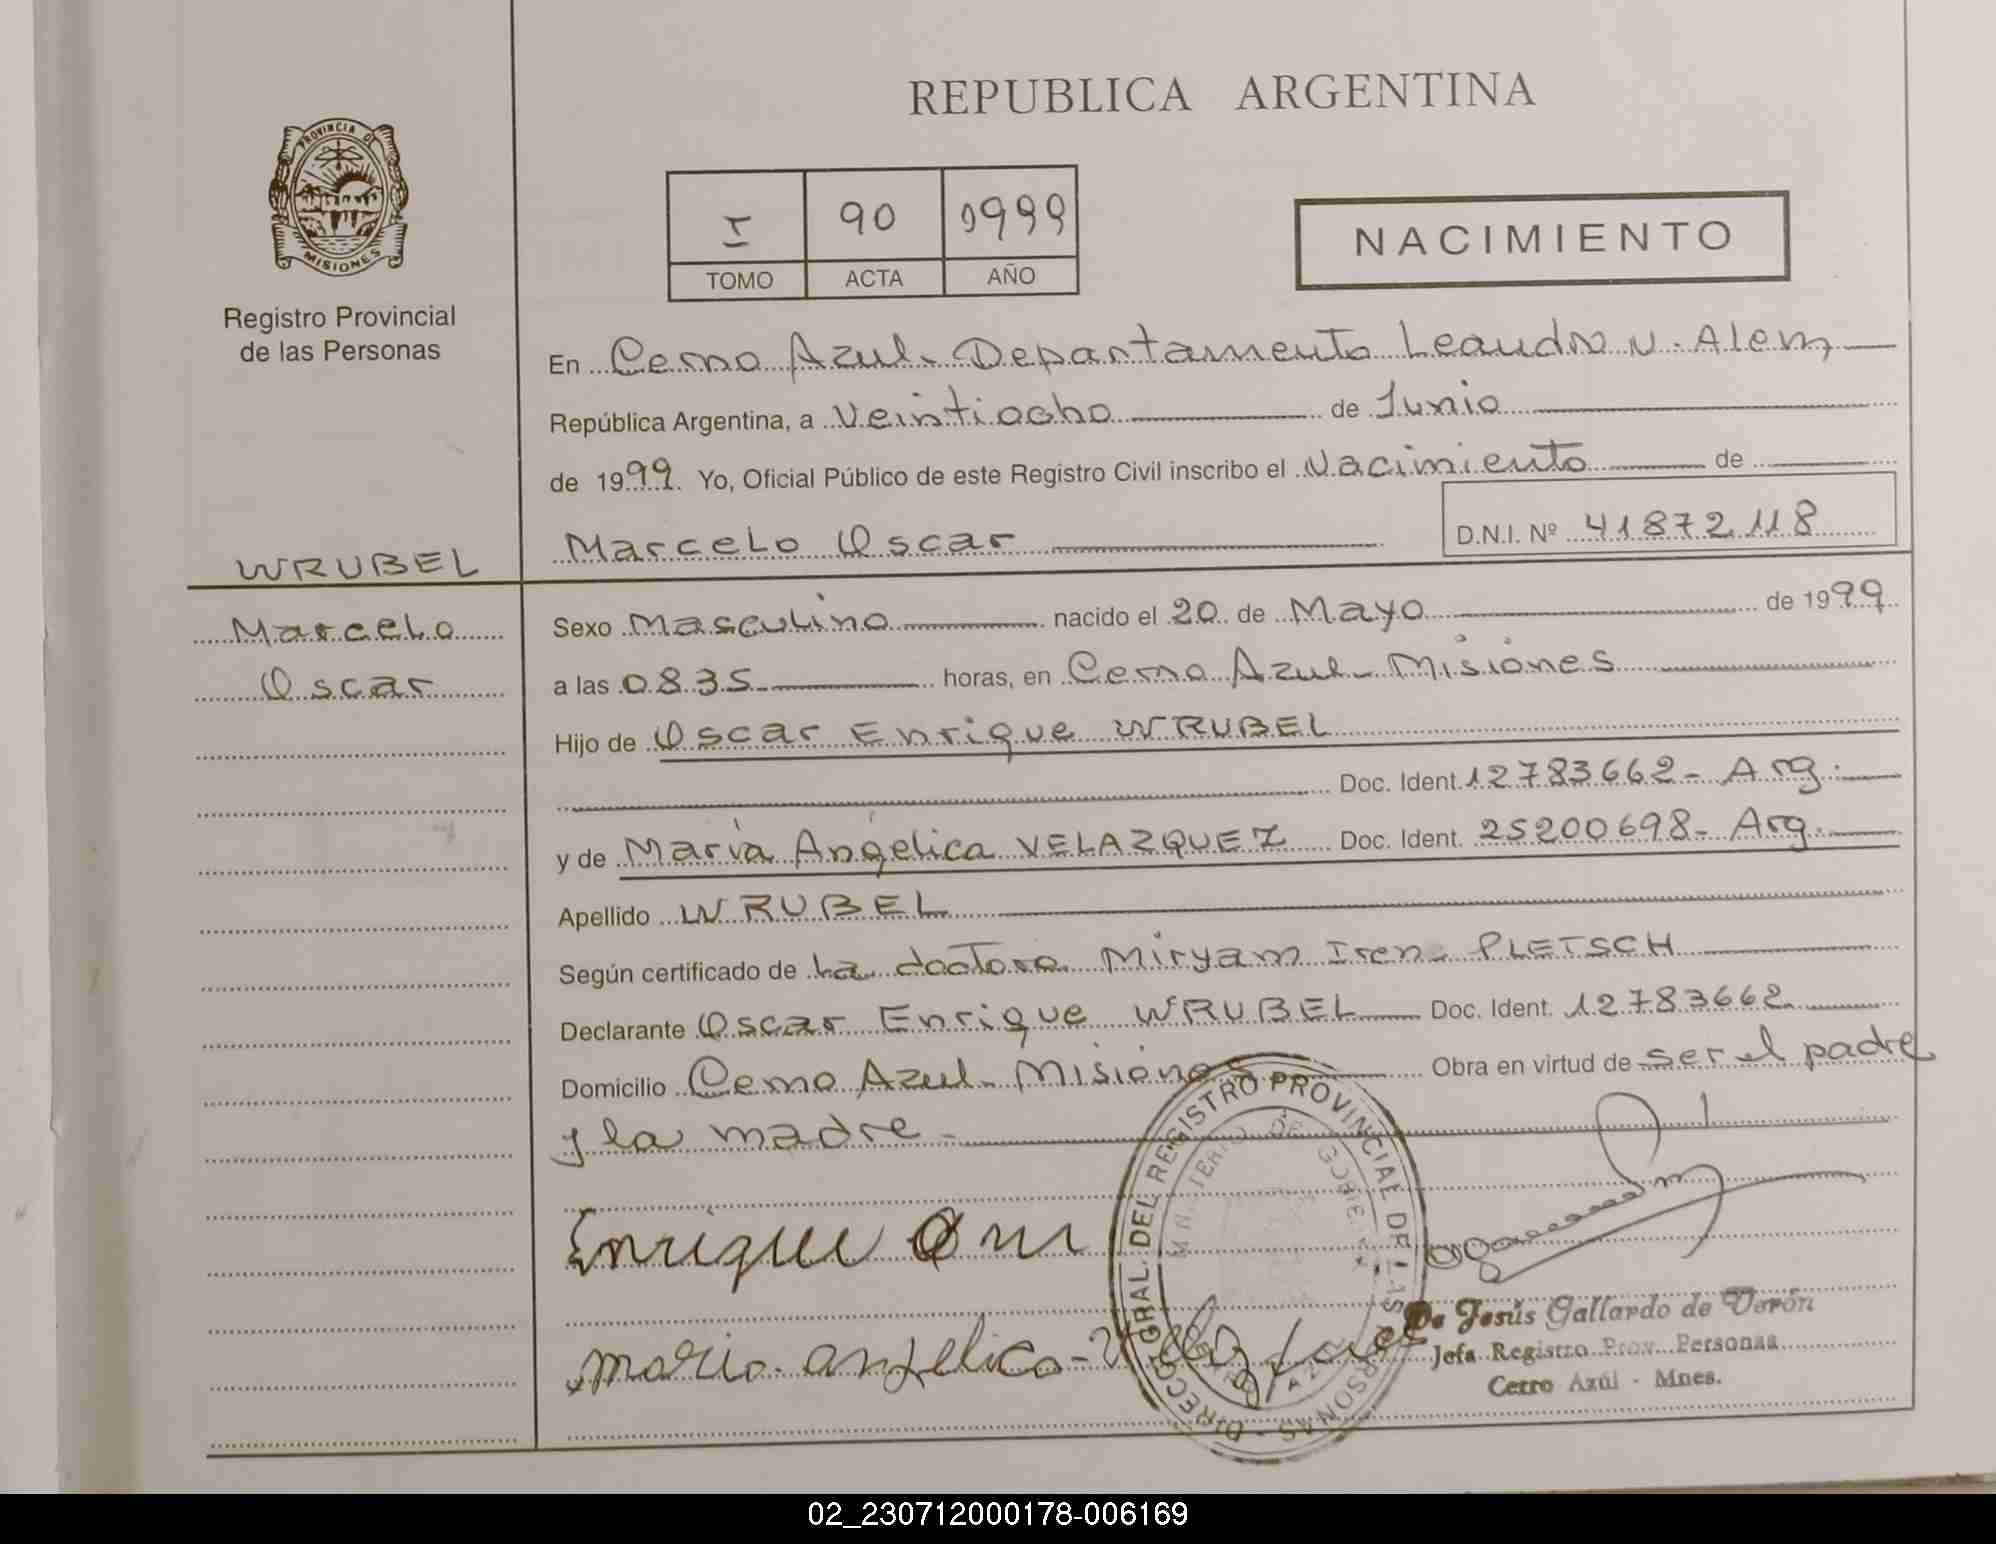 REPUBLICA ARGENTINA
PROVINCIA DE
MISIONES
Registro Provincial
de las Personas
I 90 1999
TOMO ACTA AÑO
NACIMIENTO
En Cerro Azul - Departamento Leandro N. Alem
República Argentina, a Veintiocho de Junio
de 1999. Yo, Oficial Público de este Registro Civil inscribo el Nacimiento de
Marcelo Oscar D.N.I. Nº 41872118
WRUBEL
Marcelo
Oscar
Sexo Masculino nacido el 20 de Mayo de 1999
a las 0835 horas, en Cerro Azul - Misiones
Hijo de Oscar Enrique WRUBEL
Doc. Ident. 12783662 - Arg.
y de María Angélica VELAZQUEZ Doc. Ident. 25200698 - Arg.
Apellido WRUBEL
Según certificado de La doctora Miryam Irene PLETSCH
Declarante Oscar Enrique WRUBEL Doc. Ident. 12783662
Domicilio Cerro Azul - Misiones Obra en virtud de ser el padre
y la madre -
Enrique
maria angelica -
DIRECC. GRAL. DEL REGISTRO PROVINCIAL DE LAS PERSONAS -
MINISTERIO DE GOBIERNO
De Jesús Gallardo de Verón
Jefa Registro Prov. Personas
Cerro Azúl - Mnes.
02_230712000178-006169